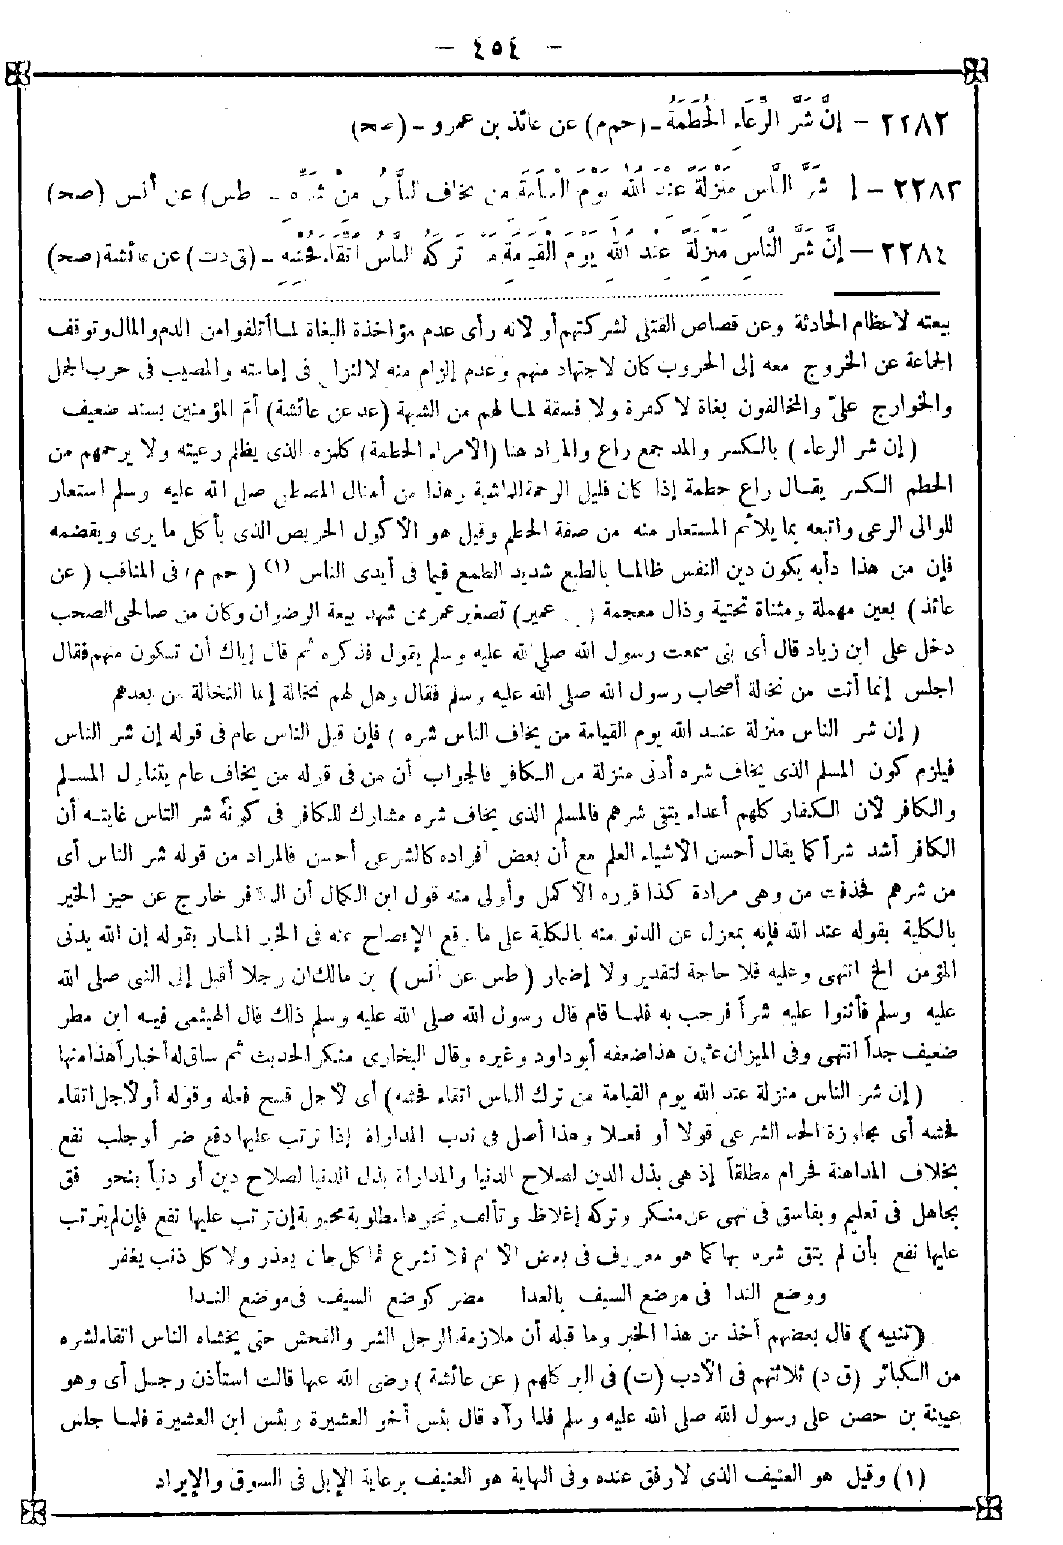 — ٤٥٤ —
٢٢٨٢ – إِنَّ شَرَّ الرِّعَاءِ الحُطَمَةُ – (حم م) عن عائذ بن عمرو – (صح)
٢٢٨٣ – إ شَرَّ النَّاسِ مَنْزِلَةً عِنْدَ اللهِ يَوْمَ القِيَامَةِ من يخاف النَّاسُ مِنْ شَرِّهِ – طس) عن أنس (صح)
٢٢٨٤ – إِنَّ شَرَّ النَّاسِ مَنْزِلَةً عِنْدَ اللهِ يَوْمَ القِيَامَةِ مَنْ تَرَكَهُ النَّاسُ اتِّقَاءَ فُحْشِهِ – (ق د ت) عن عائشة (صح)
بيعته لاعظام الحادثة وعن قصاص القتلى لشركتهم أو لانه رأى عدم مؤاخذة البغاة لما أتلفوا من الدم والمال وتوقف
الجماعة عن الخروج معه إلى الحروب كان لاجتهاد منهم وعدم إلزام منه لا لنزاع فى إمامته والمصيب فى حرب الجمل
والخوارج علىّ والمخالفون بغاة لا كفرة ولا فسقة لما لهم من الشبهة (عد عن عائشة) أمّ المؤمنين بسند ضعيف
(إن شر الرعاء) بالكسر والمد جمع راع والمراد هنا (الامراء الحطمة) كلمزه الذى يظلم رعيته ولا يرحمهم من
الحطم الكسر يقال راع حطمة إذا كان قليل الرحمة للماشية وهذا من أمثال المصطفى صلى الله عليه وسلم استعار
للوالى الرعى واتبعه بما يلائم المستعار منه من صفة الحطم وقيل هو الأكول الحريص الذى يأكل ما يرى ويقضمه
فإن من هذا دأبه يكون دين النفس ظالما بالطبع شديد الطمع فيما فى أيدى الناس (١) (حم م) فى المناقب (عن
عائذ) بعين مهملة ومثناة تحتية وذال معجمة (بن عمير) تصغير عمر ممن شهد بيعة الرضوان وكان من صالحى الصحب
دخل على ابن زياد قال أى بنى سمعت رسول الله صلى الله عليه وسلم يقول فذكره ثم قال إياك أن تكون منهم فقال
اجلس إنما أنت من نخالة أصحاب رسول الله صلى الله عليه وسلم فقال وهل لهم نخالة إنما النخالة من بعدهم
(إن شر الناس منزلة عند الله يوم القيامة من يخاف الناس شره) فإن قيل الناس عام فى قوله إن شر الناس
فيلزم كون المسلم الذى يخاف شره أدنى منزلة من الكافر فالجواب أن من فى قوله من يخاف عام يتناول المسلم
والكافر لأن الكفار كلهم أعداء يتقى شرهم فالمسلم الذى يخاف شره مشارك للكافر فى كونه شر الناس غايته أن
الكافر أشد شراً كما يقال أحسن الأشياء العلم مع أن بعض أفراده كالشرعى أحسن فالمراد من قوله شر الناس أى
من شرهم فحذفت من وهى مرادة كذا قرره الأكمل وأولى منه قول ابن الكمال أن الكافر خارج عن حيز الخير
بالكلية بقوله عند الله فإنه بمعزل عن الدنو منه بالكلية على ما وقع الإفصاح عنه فى الخبر المار بقوله إن الله يدنى
المؤمن الخ انتهى وعليه فلا حاجة لتقدير ولا إضمار (طس عن أنس) بن مالك ان رجلا أقبل إلى النبى صلى الله
عليه وسلم فأثنوا عليه شراً فرحب به فلما قام قال رسول الله صلى الله عليه وسلم ذاك قال الهيثمى فيه ابن مطر
ضعيف جداً انتهى وفى الميزان عثمان هذا ضعفه أبو داود وغيره وقال البخارى منكر الحديث ثم ساق له أخباراً هذا منها
(إن شر الناس منزلة عند الله يوم القيامة من ترك الناس اتقاء فحشه) أى لأجل قبيح فعله وقوله أو لأجل اتقاء
فحشه أى مجاوزة الحد الشرعى قولا أو فعلا وهذا أصل فى ندب المداراة إذا ترتب عليها دفع ضر أو جلب نفع
بخلاف المداهنة فحرام مطلقاً إذ هى بذل الدين لصلاح الدنيا والمداراة بذل الدنيا لصلاح دين أو دنيا بنحو رفق
بجاهل فى تعليم وبفاسق فى نهى عن منكر وتركه إغلاظ وتألف ونحوها مطلوبة محبوبة إن ترتب عليها نفع فإن لم يترتب
عليها نفع بأن لم يتق شره بها كما هو معروف فى بعض الأنام فلا تشرع فما كل جان يعذر ولا كل ذنب يغفر
ووضع الندا فى موضع السيف بالعدا   مضر كوضع السيف فى موضع الندا
(تنبيه) قال بعضهم أخذ من هذا الخبر وما قبله أن ملازمة الرجل الشر والفحش حتى يخشاه الناس اتقاء لشره
من الكبائر (ق د) ثلاثتهم فى الأدب (ت) فى البر كلهم (عن عائشة) رضى الله عنها قالت استأذن رجل أى وهو
عيينة بن حصن على رسول الله صلى الله عليه وسلم فلما رآه قال بئس أخو العشيرة وبئس ابن العشيرة فلما جلس
(١) وقيل هو العنيف الذى لا رفق عنده وفى النهاية هو العنيف برعاية الإبل فى السوق والإيراد